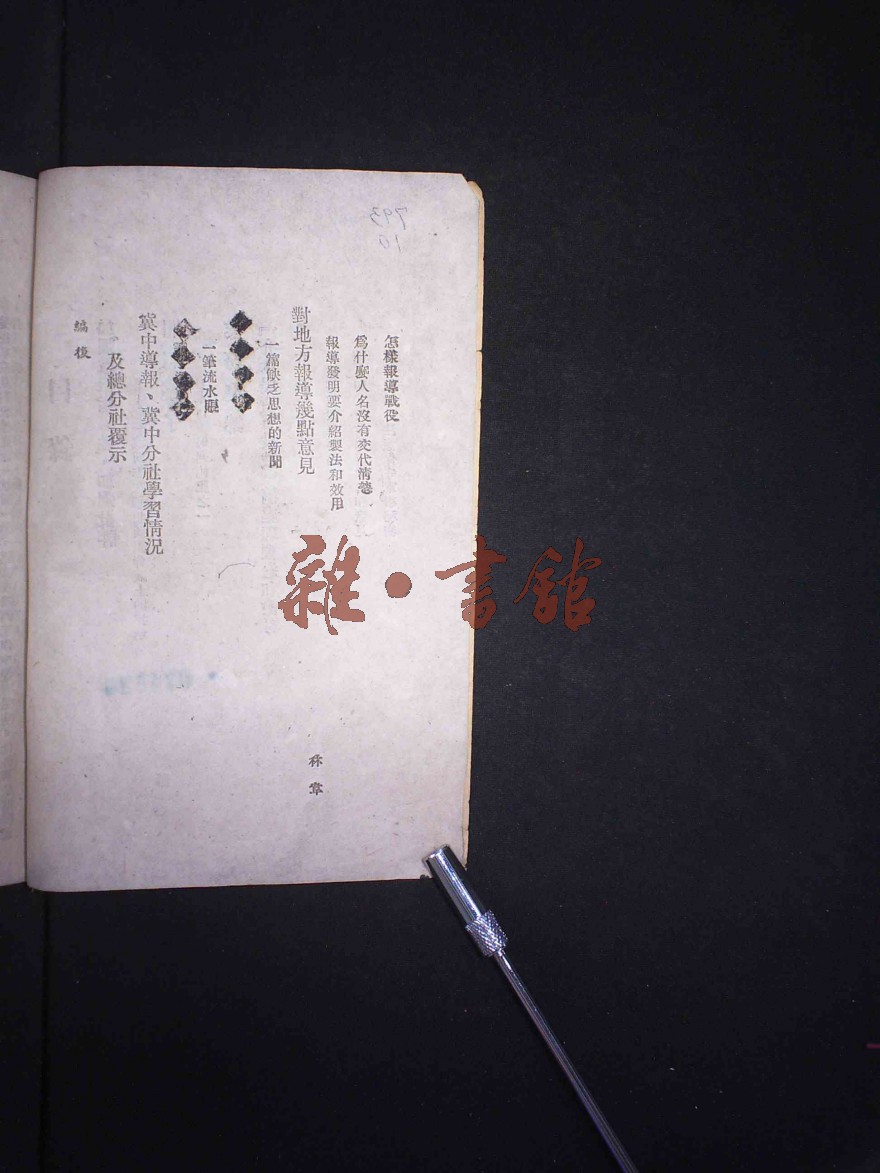 怎樣報導戰役
爲什麼人名沒有交代清楚
報導發明要介紹製法和效用
對地方報導幾點意見
一篇缺乏思想的新聞
一筆流水賬
冀中導報、冀中分社學習情況
及總分社覆示
編後
雜·書館